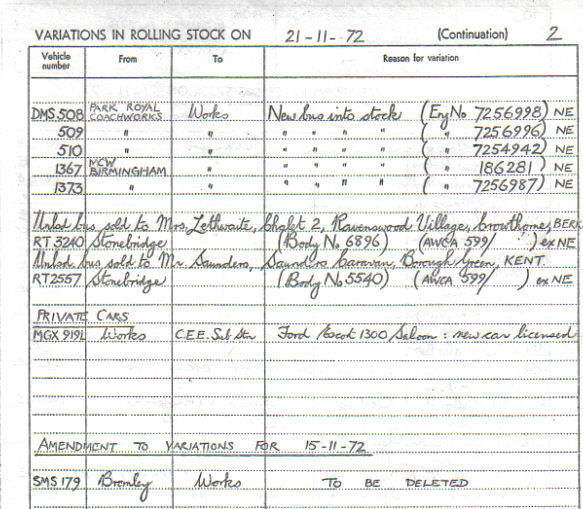 VARIATIONS IN ROLLING STOCK ON 21-11-72 (Continuation) 2
Vehicle number From To Reason for variation
DMS 508 PARK ROYAL COACHWORKS Works New bus into stock (Eng No 7256998) NE
509 " " " " " " ( " 7256996) NE
510 " " " " " " ( " 7254942) NE
1367 MCW BIRMINGHAM " " " " " ( " 186281) NE
1373 " " " " " " ( " 7256987) NE
Unlsd bus sold to Mrs. Lethwaite, Chalet 2, Ravenswood Village, Crowthorne, BERK
RT 3240 Stonebridge (Body No 6896) (AWCA 599/ ) ex NE
Unlsd bus sold to Mr. Saunders, Saunders Caravan, Borough Green, KENT.
RT2557 Stonebridge (Body No 5540) (AWCA 599/ ) ex NE
PRIVATE CARS
MGX 919L Works C.E.E. Sub Stn Ford Escort 1300 Saloon : new car licensed
AMENDMENT TO VARIATIONS FOR 15-11-72
SMS 179 Bromley Works TO BE DELETED